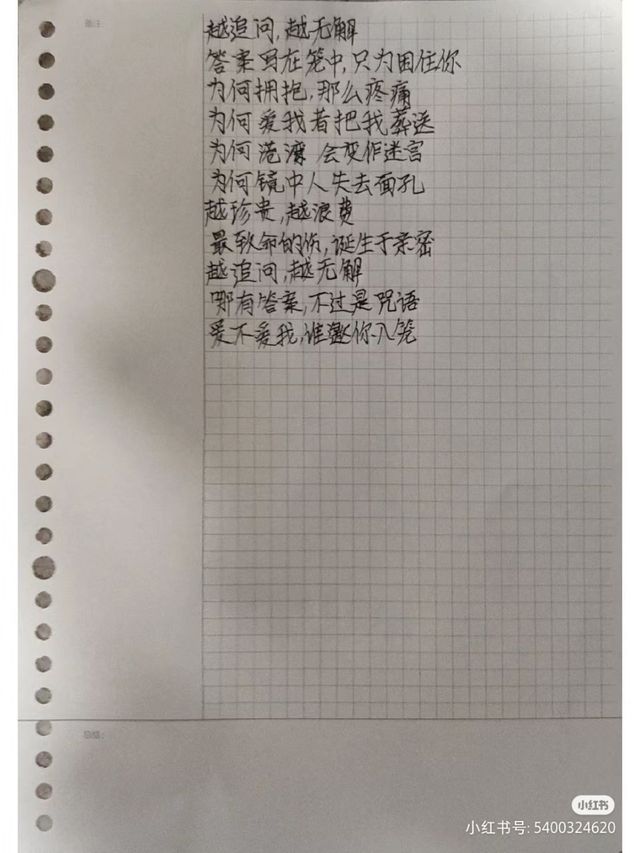 备注：
越追问,越无解
答案写在笼中,只为困住你
为何拥抱,那么疼痛
为何爱我者把我葬送
为何港湾 会变作迷宫
为何镜中人失去面孔
越珍贵,越浪费
最致命的伤,诞生于亲密
越追问,越无解
哪有答案,不过是咒语
爱不爱我,谁邀你入笼
总结：
小红书
小红书号: 5400324620